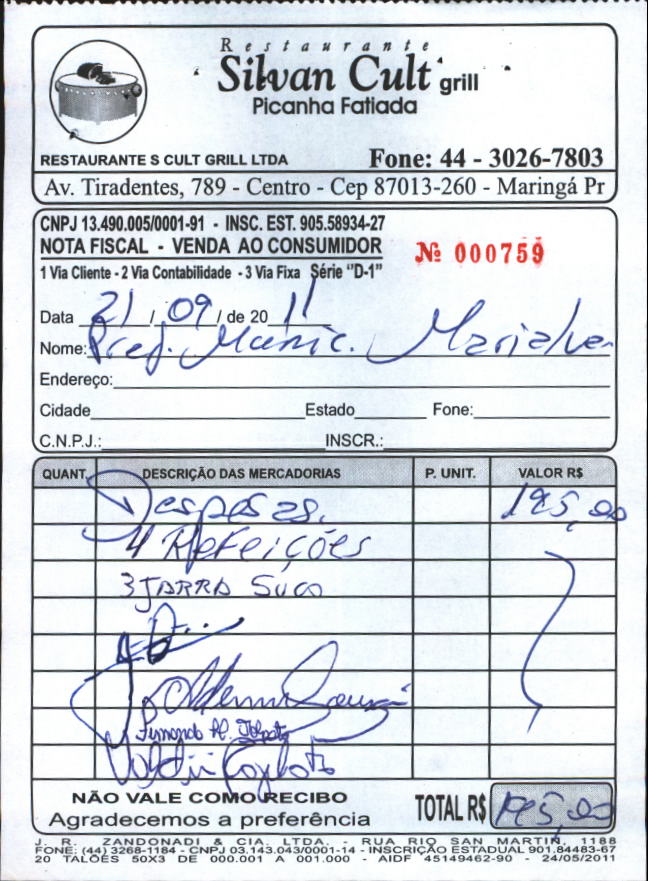 Restaurante
Silvan Cult grill
Picanha Fatiada
RESTAURANTE S CULT GRILL LTDA Fone: 44 - 3026-7803
Av. Tiradentes, 789 - Centro - Cep 87013-260 - Maringá Pr
CNPJ 13.490.005/0001-91 - INSC. EST. 905.58934-27
NOTA FISCAL - VENDA AO CONSUMIDOR Nº 000759
1 Via Cliente - 2 Via Contabilidade - 3 Via Fixa Série "D-1"
Data 21 / 09 / de 20 11
Nome: Pref. Munic. Marialva
Endereço:
Cidade Estado Fone:
C.N.P.J.: INSCR.:
QUANT. DESCRIÇÃO DAS MERCADORIAS P. UNIT. VALOR R$
Despesas. 195,00
4 Refeições
3 JARRA SUCO
NÃO VALE COMO RECIBO TOTAL R$ 195,00
Agradecemos a preferência
J. R. ZANDONADI & CIA. LTDA. - RUA RIO SAN MARTIN, 1188
FONE: (44) 3268-1184 - CNPJ 03.143.043/0001-14 - INSCRIÇÃO ESTADUAL 901.84483-67
20 TALÕES 50X3 DE 000.001 A 001.000 - AIDF 45149462-90 - 24/05/2011